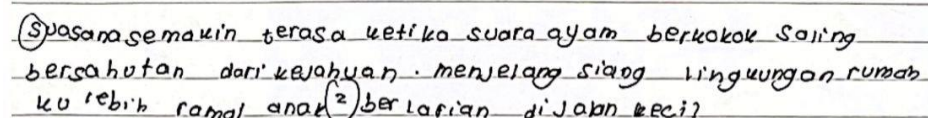 Suasana semakin terasa ketika suara ayam berkokok saling
bersahutan dari kejahuan. menjelang siang lingkungan rumah
ku lebih ramai anak (2) berlarian di jalan kecil